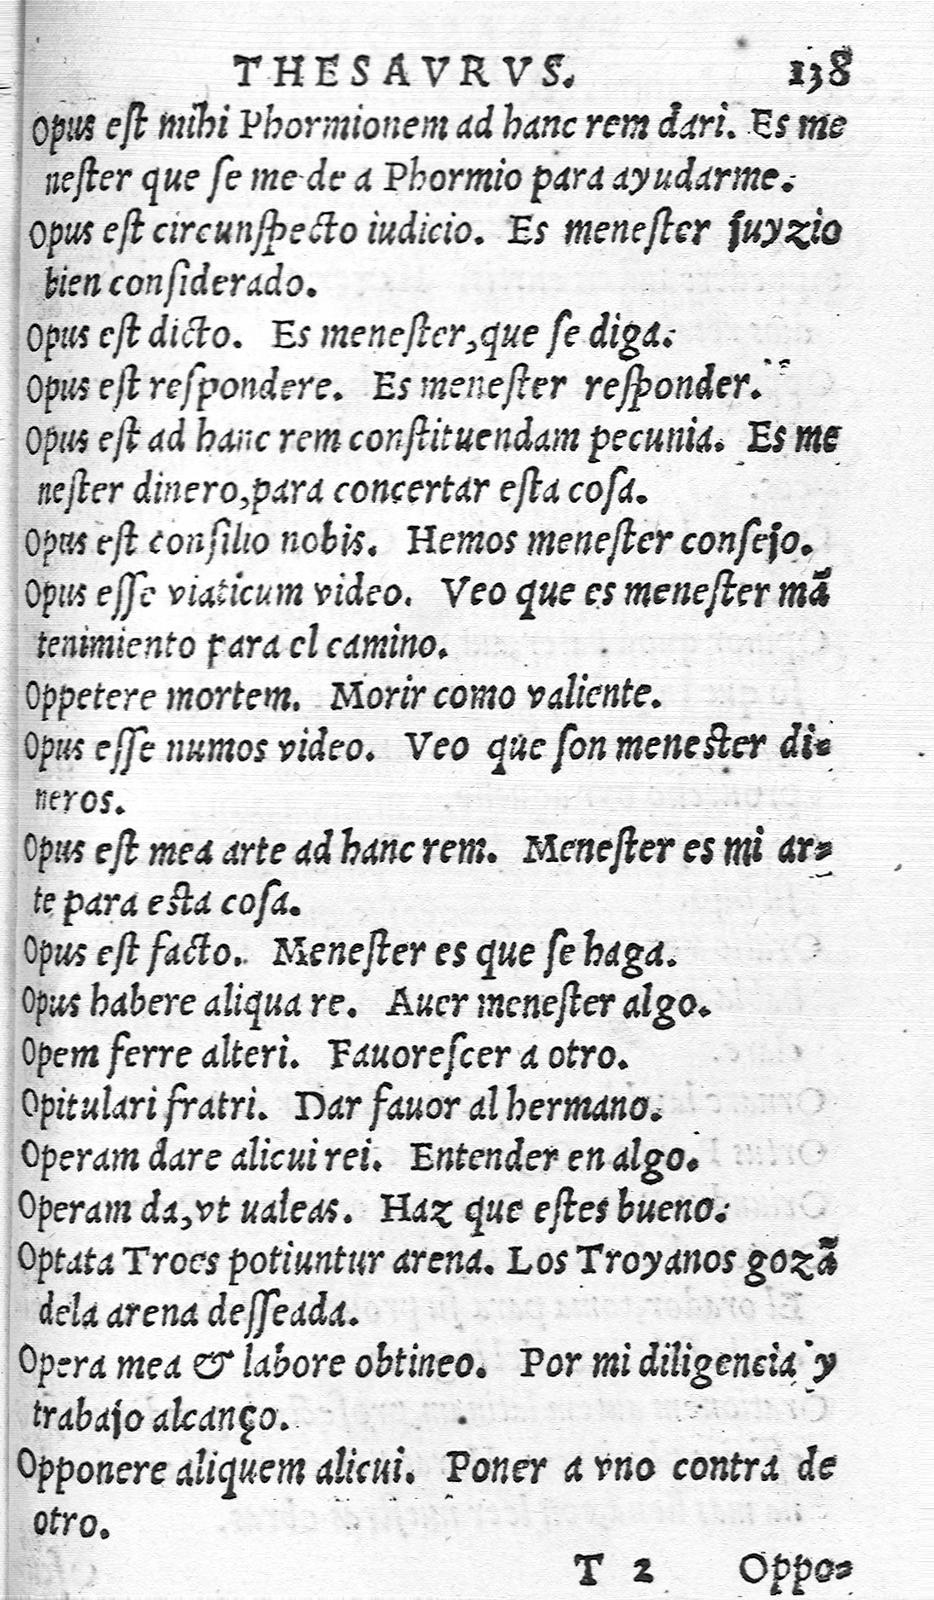 THESAVRVS. 138
Opus eſt mihi Phormionem ad hanc rem dari. Es me
neſter que ſe me de a Phormio para ayudarme.
Opus eſt circunſpecto iudicio. Es meneſter juyzio
bien conſiderado.
Opus eſt dicto. Es meneſter, que ſe diga.
Opus eſt reſpondere. Es meneſter reſponder.
Opus eſt ad hanc rem conſtituendam pecunia. Es me
neſter dinero, para concertar eſta coſa.
Opus eſt conſilio nobis. Hemos meneſter conſejo.
Opus eſſe viaticum video. Veo que es meneſter mã
tenimiento para el camino.
Oppetere mortem. Morir como valiente.
Opus eſſe numos video. Veo que ſon meneſter di-
neros.
Opus eſt mea arte ad hanc rem. Meneſter es mi ar-
te para eſta coſa.
Opus eſt facto. Meneſter es que ſe haga.
Opus habere aliqua re. Auer meneſter algo.
Opem ferre alteri. Fauoreſcer a otro.
Opitulari fratri. Dar fauor al hermano.
Operam dare alicui rei. Entender en algo.
Operam da, vt ualeas. Haz que eſtes bueno.
Optata Troes potiuntur arena. Los Troyanos gozã
dela arena deſſeada.
Opera mea & labore obtineo. Por mi diligencia y
trabajo alcanço.
Opponere aliquem alicui. Poner a vno contra de
otro.
T 2 Oppo-